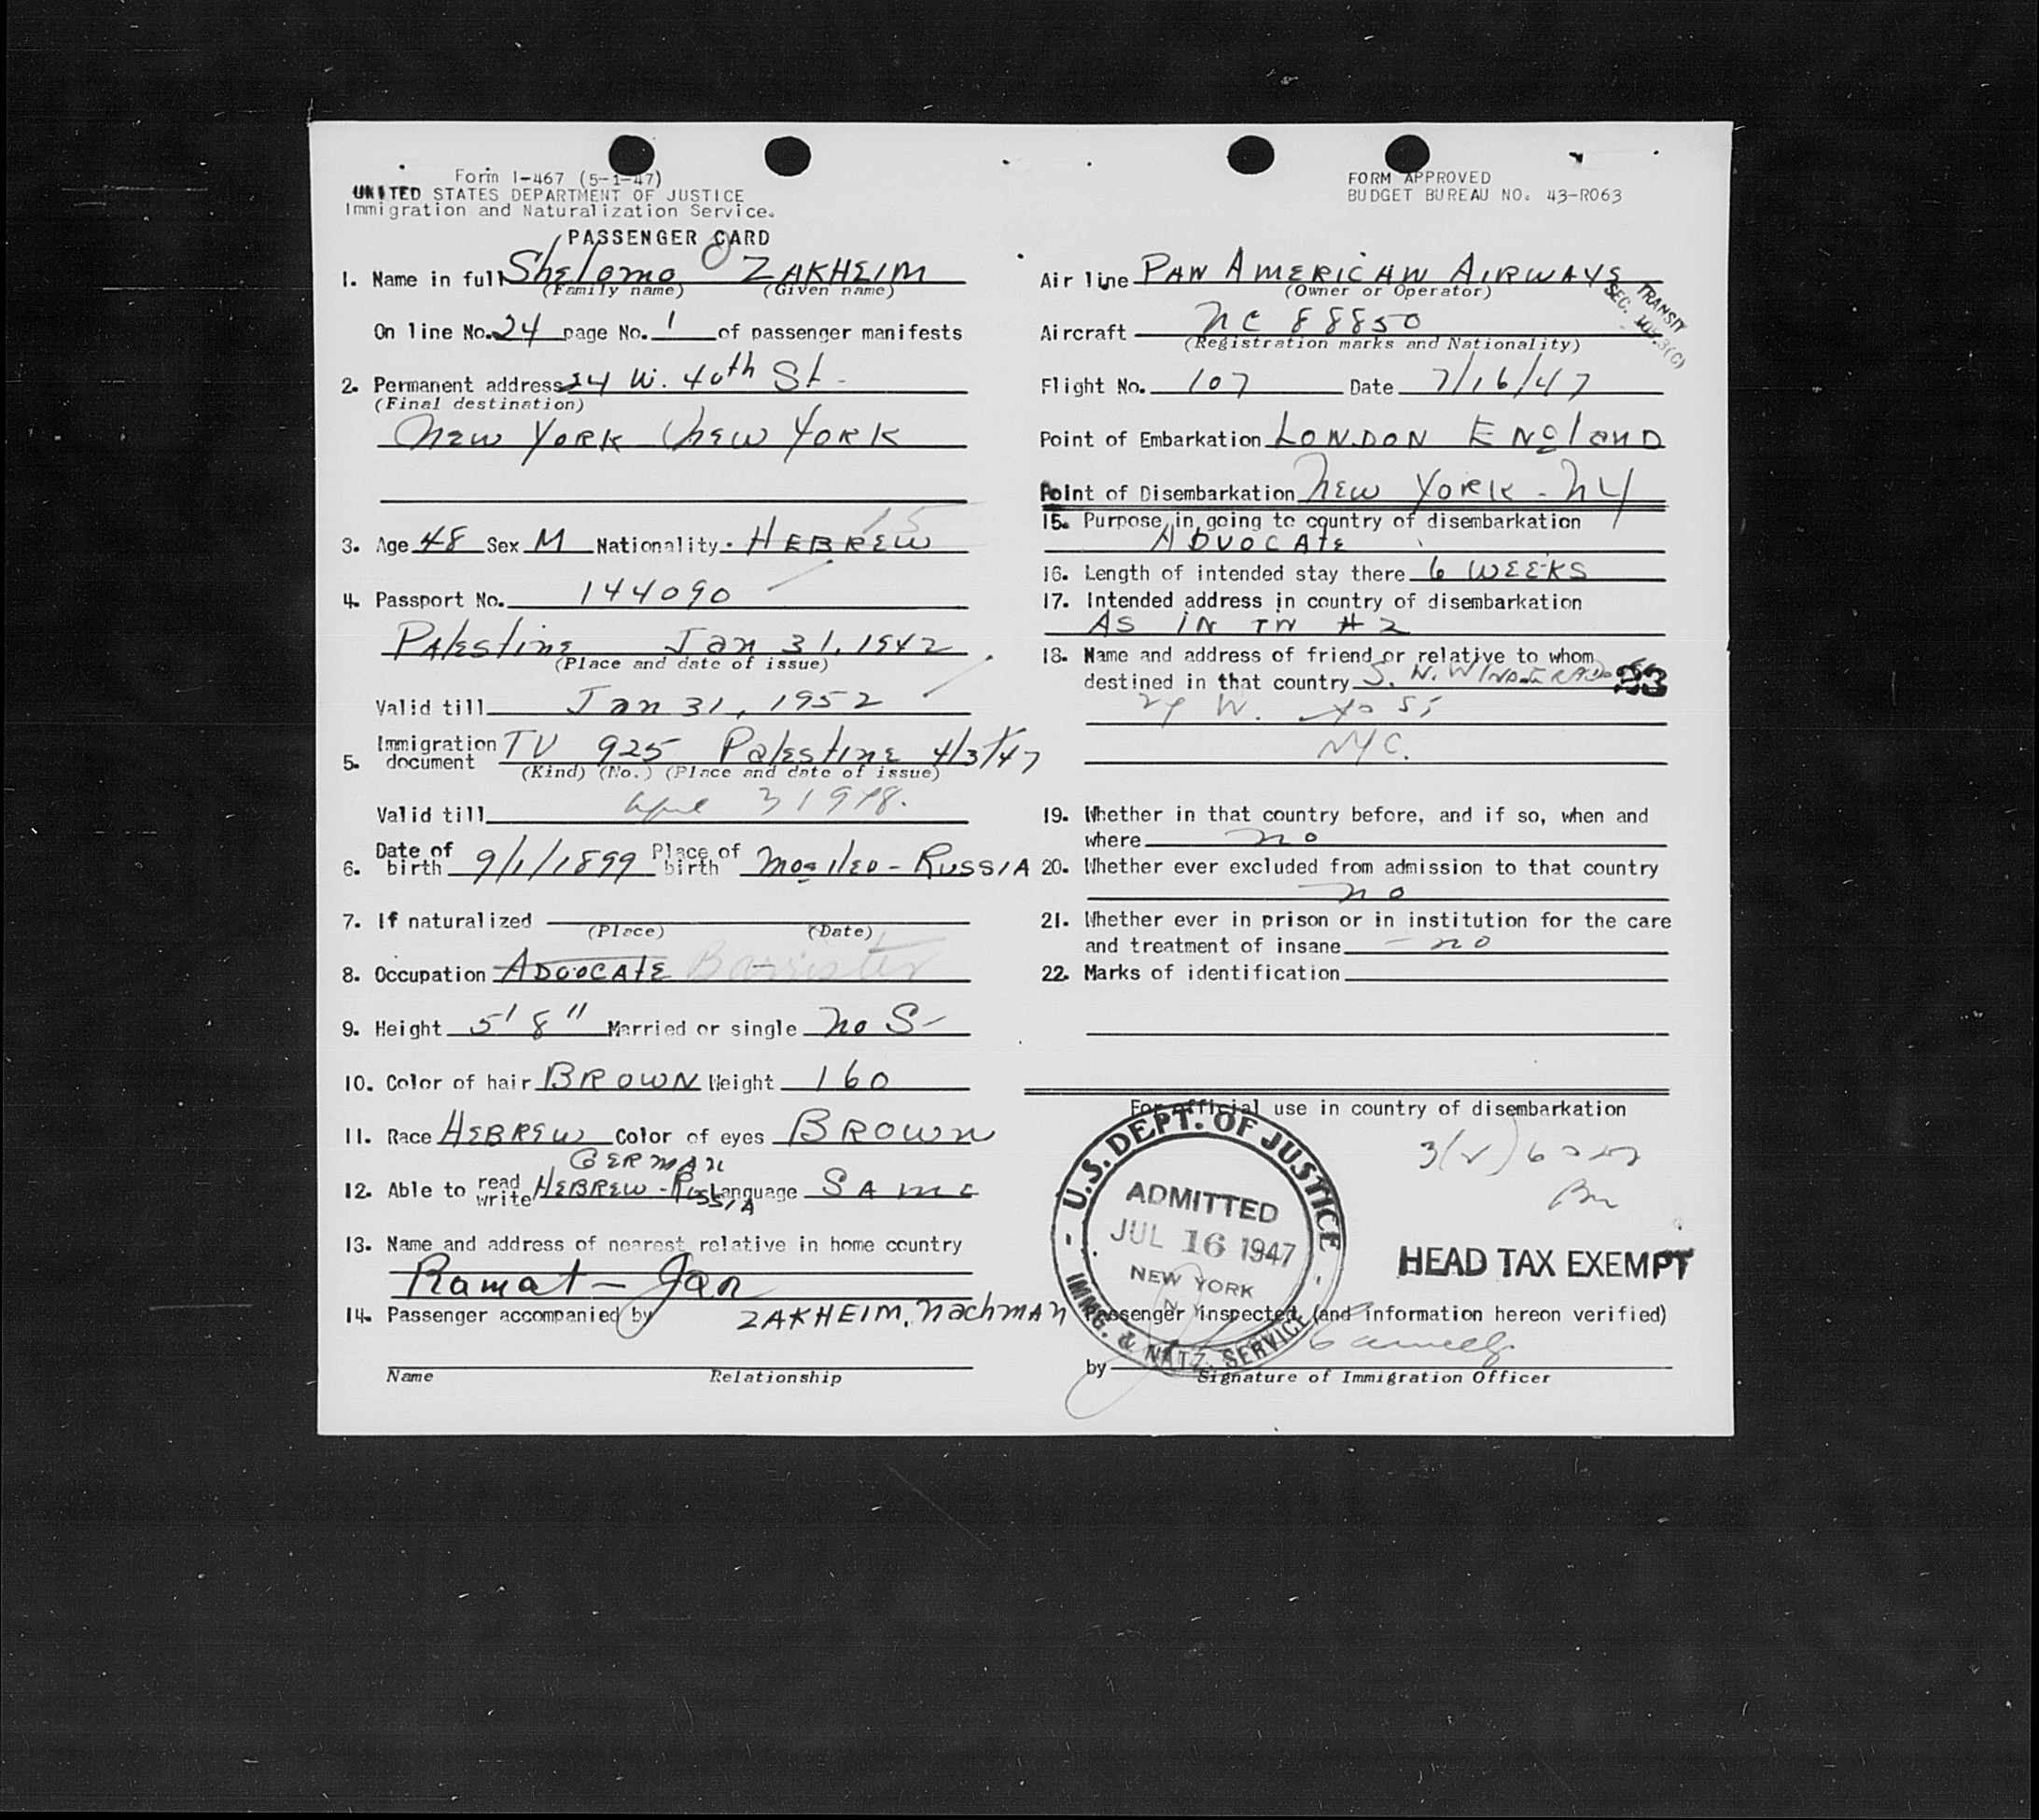 Form I-467 (5-1-47)
UNITED STATES DEPARTMENT OF JUSTICE
Immigration and Naturalization Service.
PASSENGER CARD
FORM APPROVED
BUDGET BUREAU NO. 43-R063
1. Name in full Shelomo ZAKHEIM
(Family name) (Given name)
On line No. 24 page No. 1 of passenger manifests
2. Permanent address 24 W. 40th St-
(Final destination)
NEW YORK NEW YORK
3. Age 48 Sex M Nationality HEBREW
15
4. Passport No. 144090
Palestine Jan 31, 1942
(Place and date of issue)
Valid till Jan 31, 1952
5. Immigration document TV 925 Palestine 4/3/47
(Kind) (No.) (Place and date of issue)
Valid till April 3 1948.
6. Date of birth 9/1/1899 Place of birth - RUSSIA
7. If naturalized
(Place) (Date)
8. Occupation ADVOCATE Barrister
9. Height 5' 8" Married or single no S-
10. Color of hair BROWN Weight 160
11. Race HEBREW Color of eyes BROWN
GERMAN
12. Able to read write HEBREW - RUSSIA Language SAME
13. Name and address of nearest relative in home country
Ramat - Gan
14. Passenger accompanied by ZAKHEIM, Nachman
Name Relationship
Air line PAN AMERICAN AIRWAYS
(Owner or Operator)
TRANSIT
SEC. 3(C)
Aircraft NC 88850
(Registration marks and Nationality)
Flight No. 107 Date 7/16/47
Point of Embarkation LONDON ENGLAND
Point of Disembarkation NEW YORK - NY
15. Purpose in going to country of disembarkation
ADVOCATE
16. Length of intended stay there 6 WEEKS
17. Intended address in country of disembarkation
AS IN #2
18. Name and address of friend or relative to whom
destined in that country S. N.
93
24 W. 40 St
NYC.
19. Whether in that country before, and if so, when and
where no
20. Whether ever excluded from admission to that country
no
21. Whether ever in prison or in institution for the care
and treatment of insane - no
22. Marks of identification
For official use in country of disembarkation
U.S. DEPT. OF JUSTICE
ADMITTED
JUL 16 1947
NEW YORK
N.Y.
IMMG. & NATZ. SERVICE
HEAD TAX EXEMPT
Passenger inspected (and information hereon verified)
by
Signature of Immigration Officer